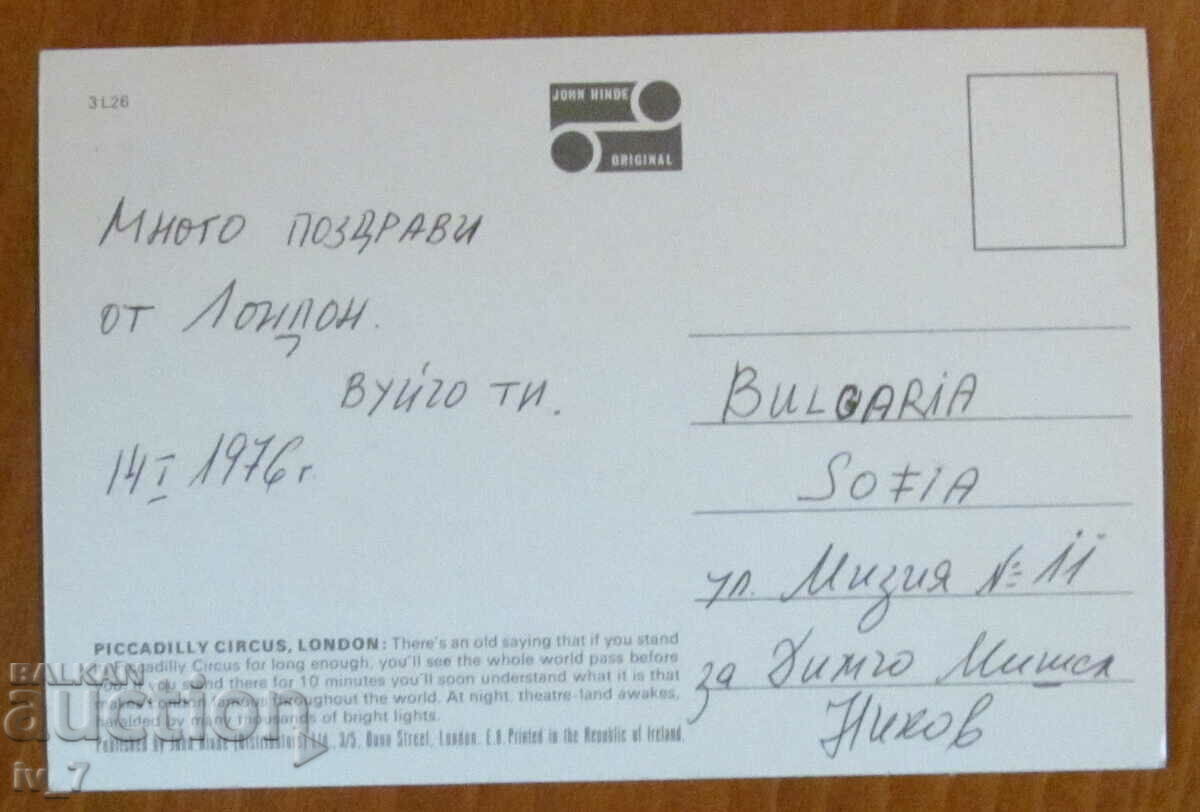 3L26
JOHN HINDE
ORIGINAL
Много поздрави
от Лондон.
Вуйчо ти.
14 I 1976 г.
BULGARIA
SOFIA
ул. Мизия № 11
за Димчо
Ников
PICCADILLY CIRCUS, LONDON: There's an old saying that if you stand
Piccadilly Circus for long enough, you'll see the whole world pass before
you. you stand there for 10 minutes you'll soon understand what it is that
makes London famous throughout the world. At night, theatre-land awakes,
heralded by many thousands of bright lights.
Published by John Hinde (Distributors) Ltd., 3/5, Street, London. E.8. Printed in the Republic of Ireland.
BALKAN
auction
iv_7